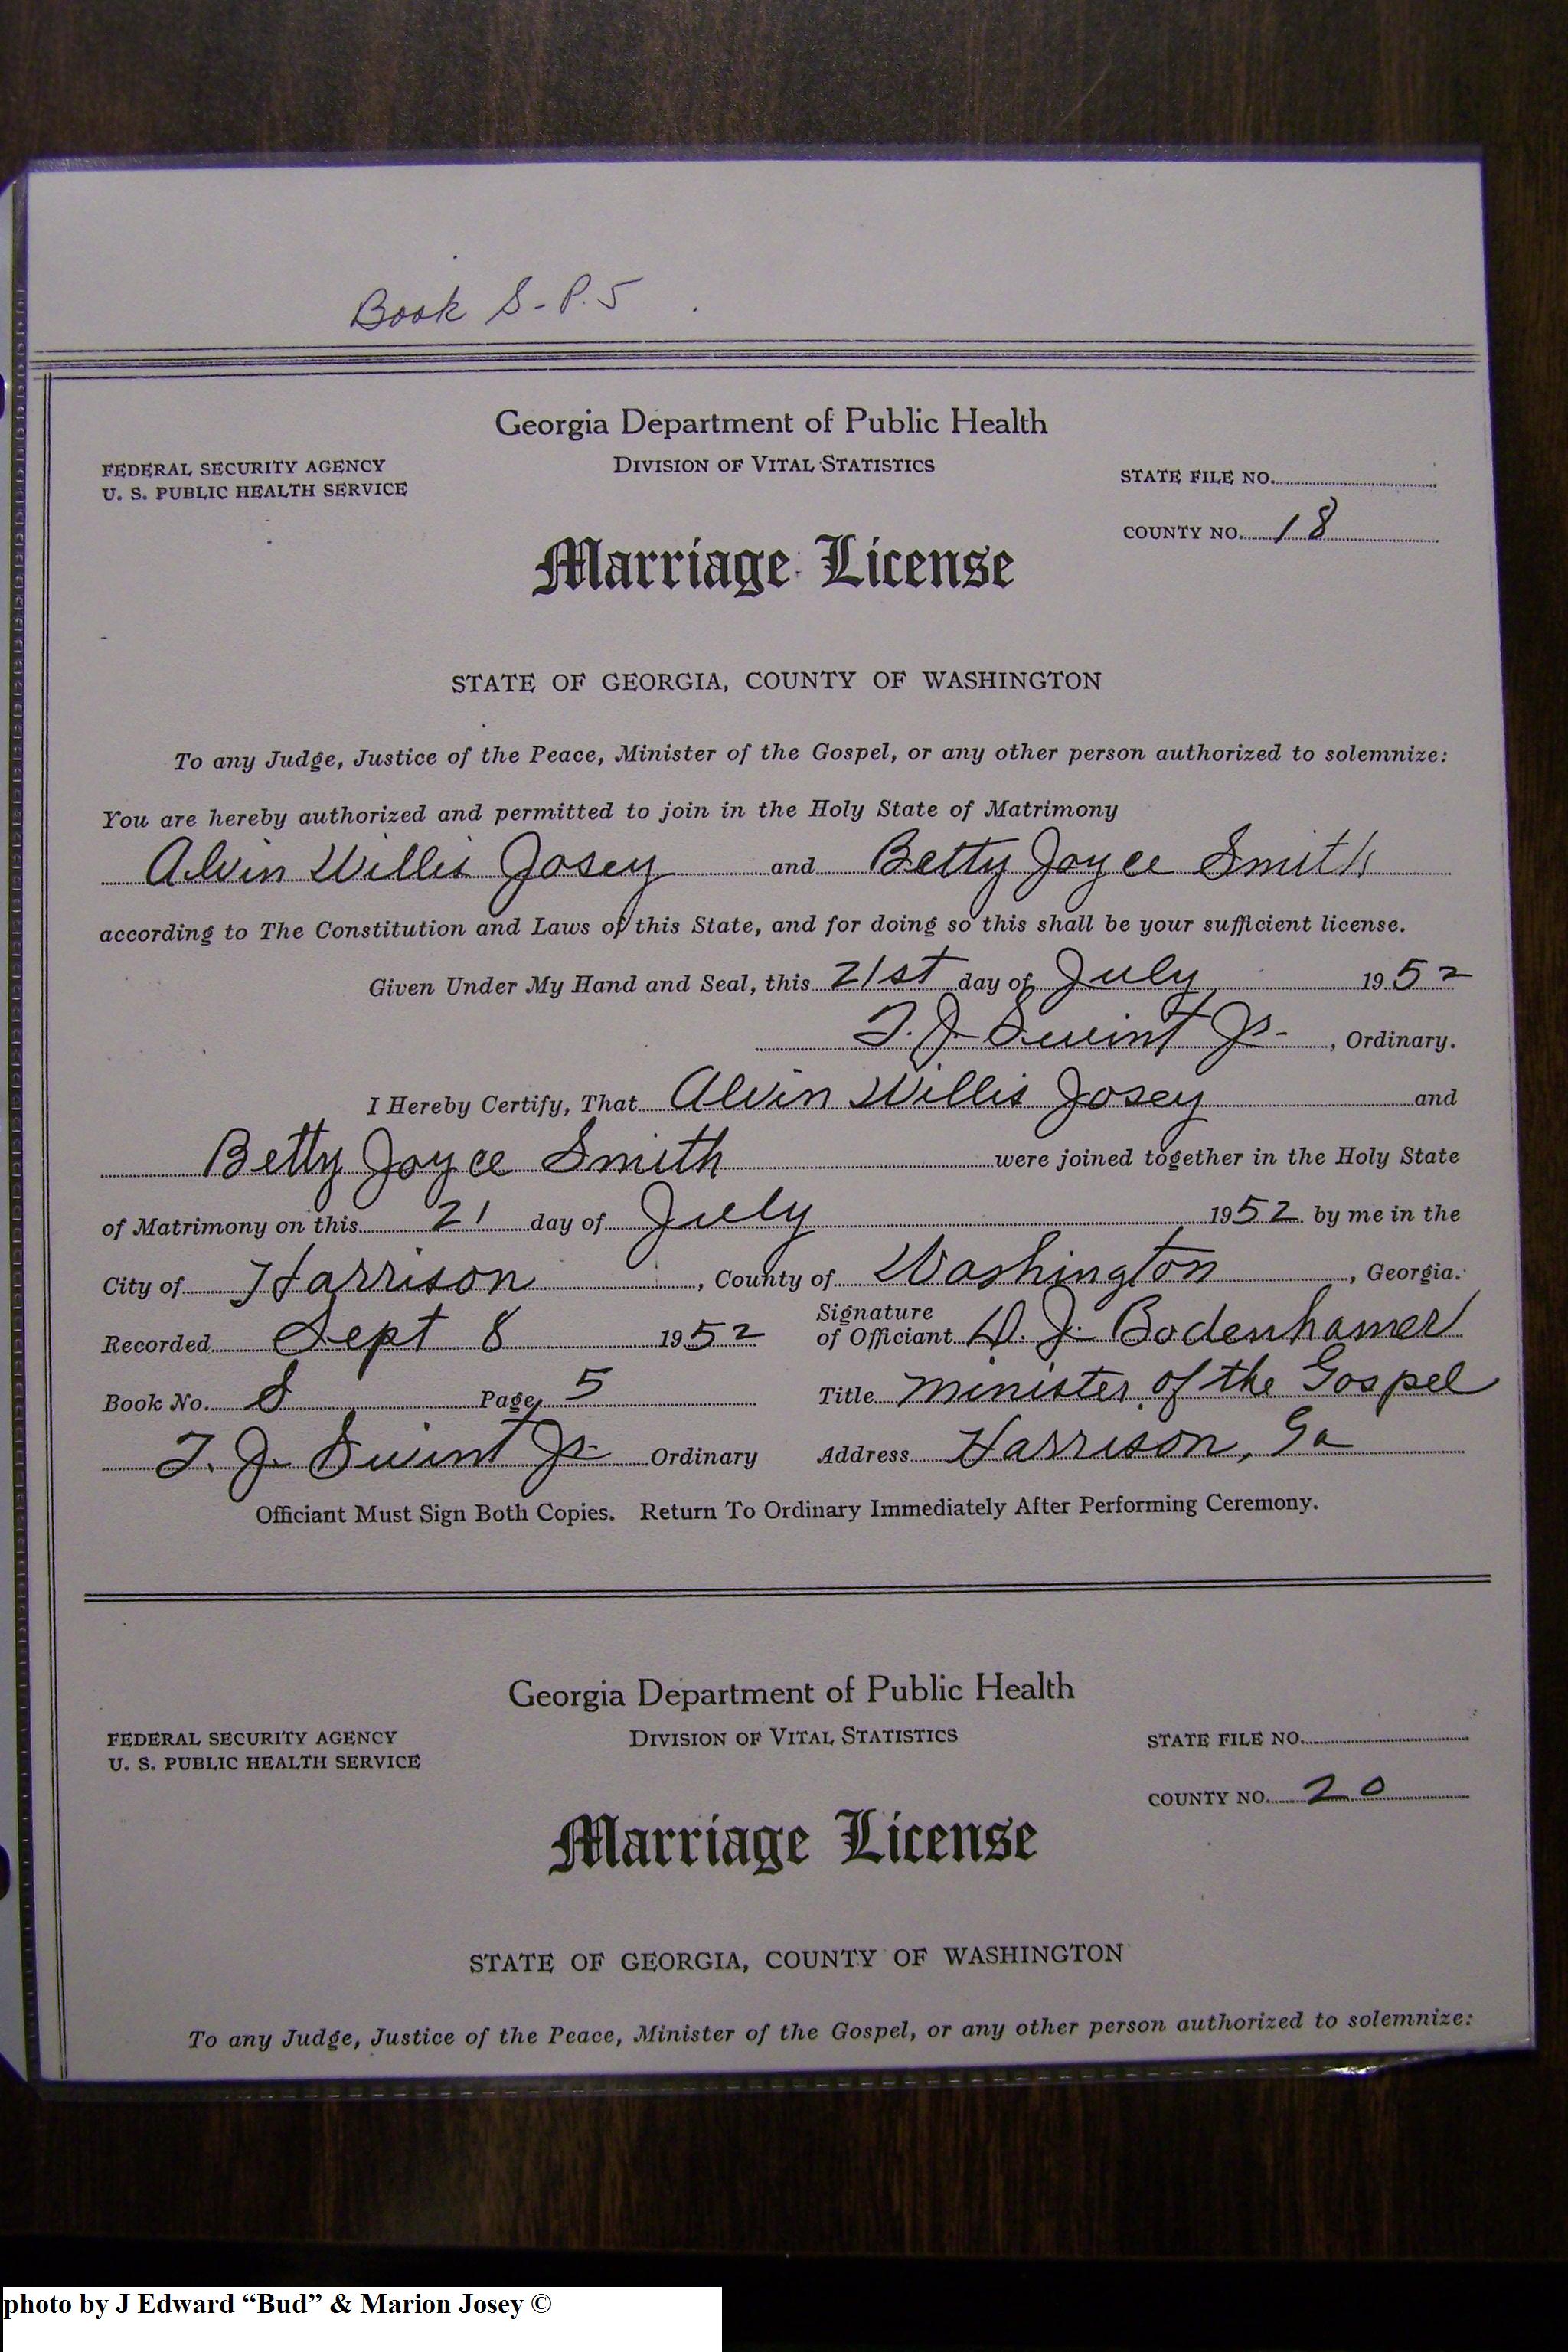 Book S - P. 5
Georgia Department of Public Health
FEDERAL SECURITY AGENCY
U. S. PUBLIC HEALTH SERVICE
DIVISION OF VITAL STATISTICS
STATE FILE NO.
COUNTY NO. 18
Marriage License
STATE OF GEORGIA, COUNTY OF WASHINGTON
To any Judge, Justice of the Peace, Minister of the Gospel, or any other person authorized to solemnize:
You are hereby authorized and permitted to join in the Holy State of Matrimony
Alvin Willis Josey and Betty Joyce Smith
according to The Constitution and Laws of this State, and for doing so this shall be your sufficient license.
Given Under My Hand and Seal, this 21st day of July 1952
T. J. Swint Jr. , Ordinary.
I Hereby Certify, That Alvin Willis Josey and
Betty Joyce Smith were joined together in the Holy State
of Matrimony on this 21 day of July 1952 by me in the
City of Harrison , County of Washington , Georgia.
Recorded Sept 8 1952 Signature of Officiant D. J. Bodenhamer
Book No. S Page 5 Title Minister of the Gospel
T. J. Swint Jr Ordinary Address Harrison, Ga
Officiant Must Sign Both Copies. Return To Ordinary Immediately After Performing Ceremony.
Georgia Department of Public Health
FEDERAL SECURITY AGENCY
U. S. PUBLIC HEALTH SERVICE
DIVISION OF VITAL STATISTICS
STATE FILE NO.
COUNTY NO. 20
Marriage License
STATE OF GEORGIA, COUNTY OF WASHINGTON
To any Judge, Justice of the Peace, Minister of the Gospel, or any other person authorized to solemnize:
photo by J Edward “Bud” & Marion Josey ©